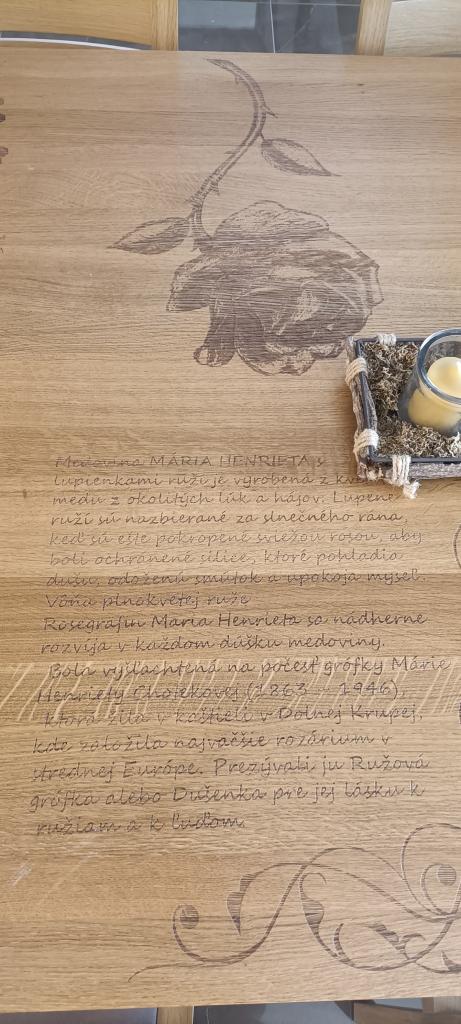 Medovina MÁRIA HENRIETA s
lupienkami ruží je vyrobená z
medu z okolitých lúk a hájov. Lupene
ruží sú nazbierané za slnečného rána,
keď sú ešte pokropené sviežou rosou, aby
boli ochránené silice, ktoré pohladia
dušu, odoženú smútok a upokoja myseľ.
Vôňa plnokvetej ruže
Rosegrafin Maria Henrieta sa nádherne
rozvíja v každom dúšku medoviny.
Bola vyšlachtená na počesť grófky Márie
Henriety Chotekovej (1863 - 1946),
ktorá žila v kaštieli v Dolnej Krupej,
kde založila najväčšie rozárium v
strednej Európe. Prezývali ju Ružová
grófka alebo Dušenka pre jej lásku k
ružiam a k ľuďom.